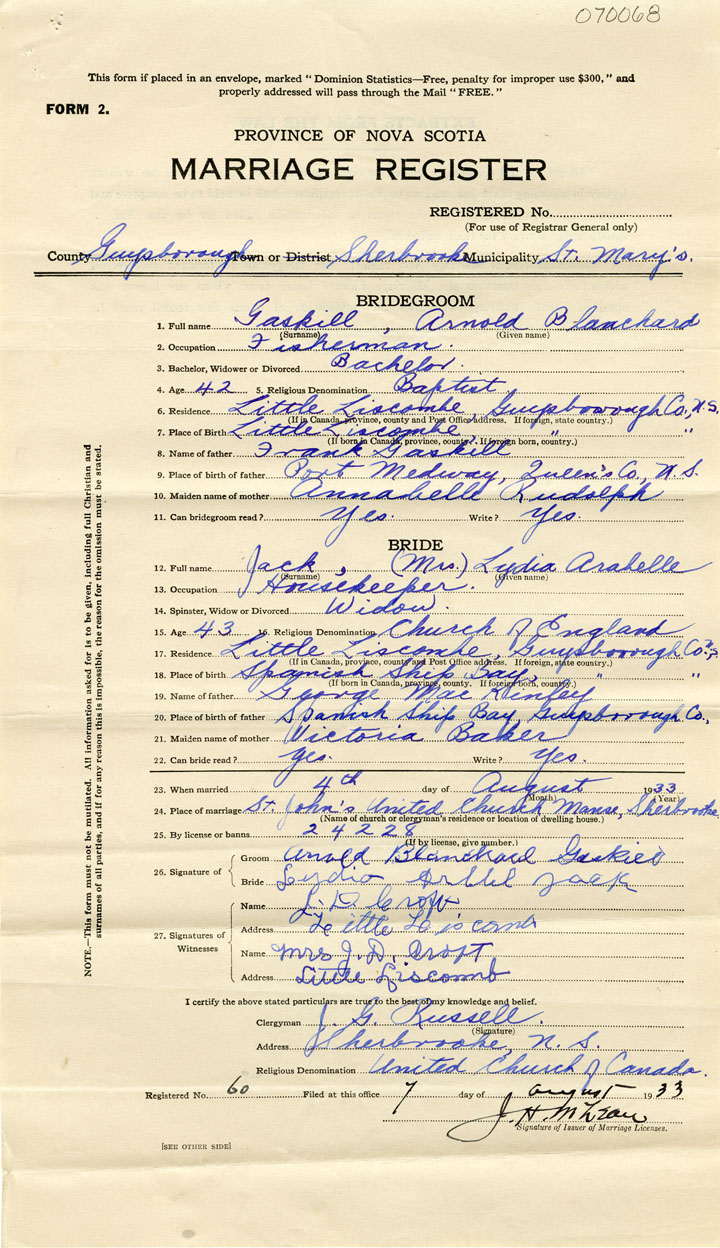 070068
This form if placed in an envelope, marked "Dominion Statistics—Free, penalty for improper use $300," and
properly addressed will pass through the Mail "FREE."
FORM 2.
PROVINCE OF NOVA SCOTIA
MARRIAGE REGISTER
REGISTERED No.
(For use of Registrar General only)
County Guysborough Town or District Sherbrooke Municipality St. Mary's.
BRIDEGROOM
1. Full name Gaskill, Arnold Blanchard
(Surname) (Given name)
2. Occupation Fisherman.
3. Bachelor, Widower or Divorced Bachelor.
4. Age 42 5. Religious Denomination Baptist
6. Residence Little Liscombe, Guysborough Co., N.S.
(If in Canada, province, county and Post Office address. If foreign, state country.)
7. Place of Birth Little Liscombe, " "
(If born in Canada, province, county. If foreign born, country.)
8. Name of father Frank Gaskill
9. Place of birth of father Port Medway, Queen's Co., N.S.
10. Maiden name of mother Annabelle Rudolph
11. Can bridegroom read? Yes. Write? Yes.
BRIDE
12. Full name Jack, (Mrs.) Lydia Arabelle
(Surname) (Given name)
13. Occupation Housekeeper.
14. Spinster, Widow or Divorced Widow.
15. Age 43 16. Religious Denomination Church of England
17. Residence Little Liscombe, Guysborough Co. N.S.
(If in Canada, province, county and Post Office address. If foreign, state country.)
18. Place of birth Spanish Ship Bay, " "
(If born in Canada, province, county. If foreign born, country.)
19. Name of father George MacKinley
20. Place of birth of father Spanish Ship Bay, Guysborough Co.,
21. Maiden name of mother Victoria Baker
22. Can bride read? Yes. Write? Yes.
23. When married 4th day of August 1933
(Month) (Year)
24. Place of marriage St. John's United Church Manse, Sherbrooke
(Name of church or clergyman's residence or location of dwelling house.)
25. By license or banns 24228
(If by license, give number.)
26. Signature of
Groom Arnold Blanchard Gaskill
Bride Lydia Jack
27. Signatures of Witnesses
Name J. D. Croft
Address Little Liscomb
Name Mrs J. D. Croft
Address Little Liscomb
I certify the above stated particulars are true to the best of my knowledge and belief.
Clergyman J. G. Russell.
(Signature)
Address Sherbrooke, N.S.
Religious Denomination United Church of Canada.
Registered No. 60 Filed at this office 7 day of August 1933
J. H. McLean
Signature of Issuer of Marriage Licenses.
[SEE OTHER SIDE]
NOTE.—This form must not be mutilated. All information asked for is to be given, including full Christian and
surnames of all parties, and if for any reason this is impossible, the reason for the omission must be stated.